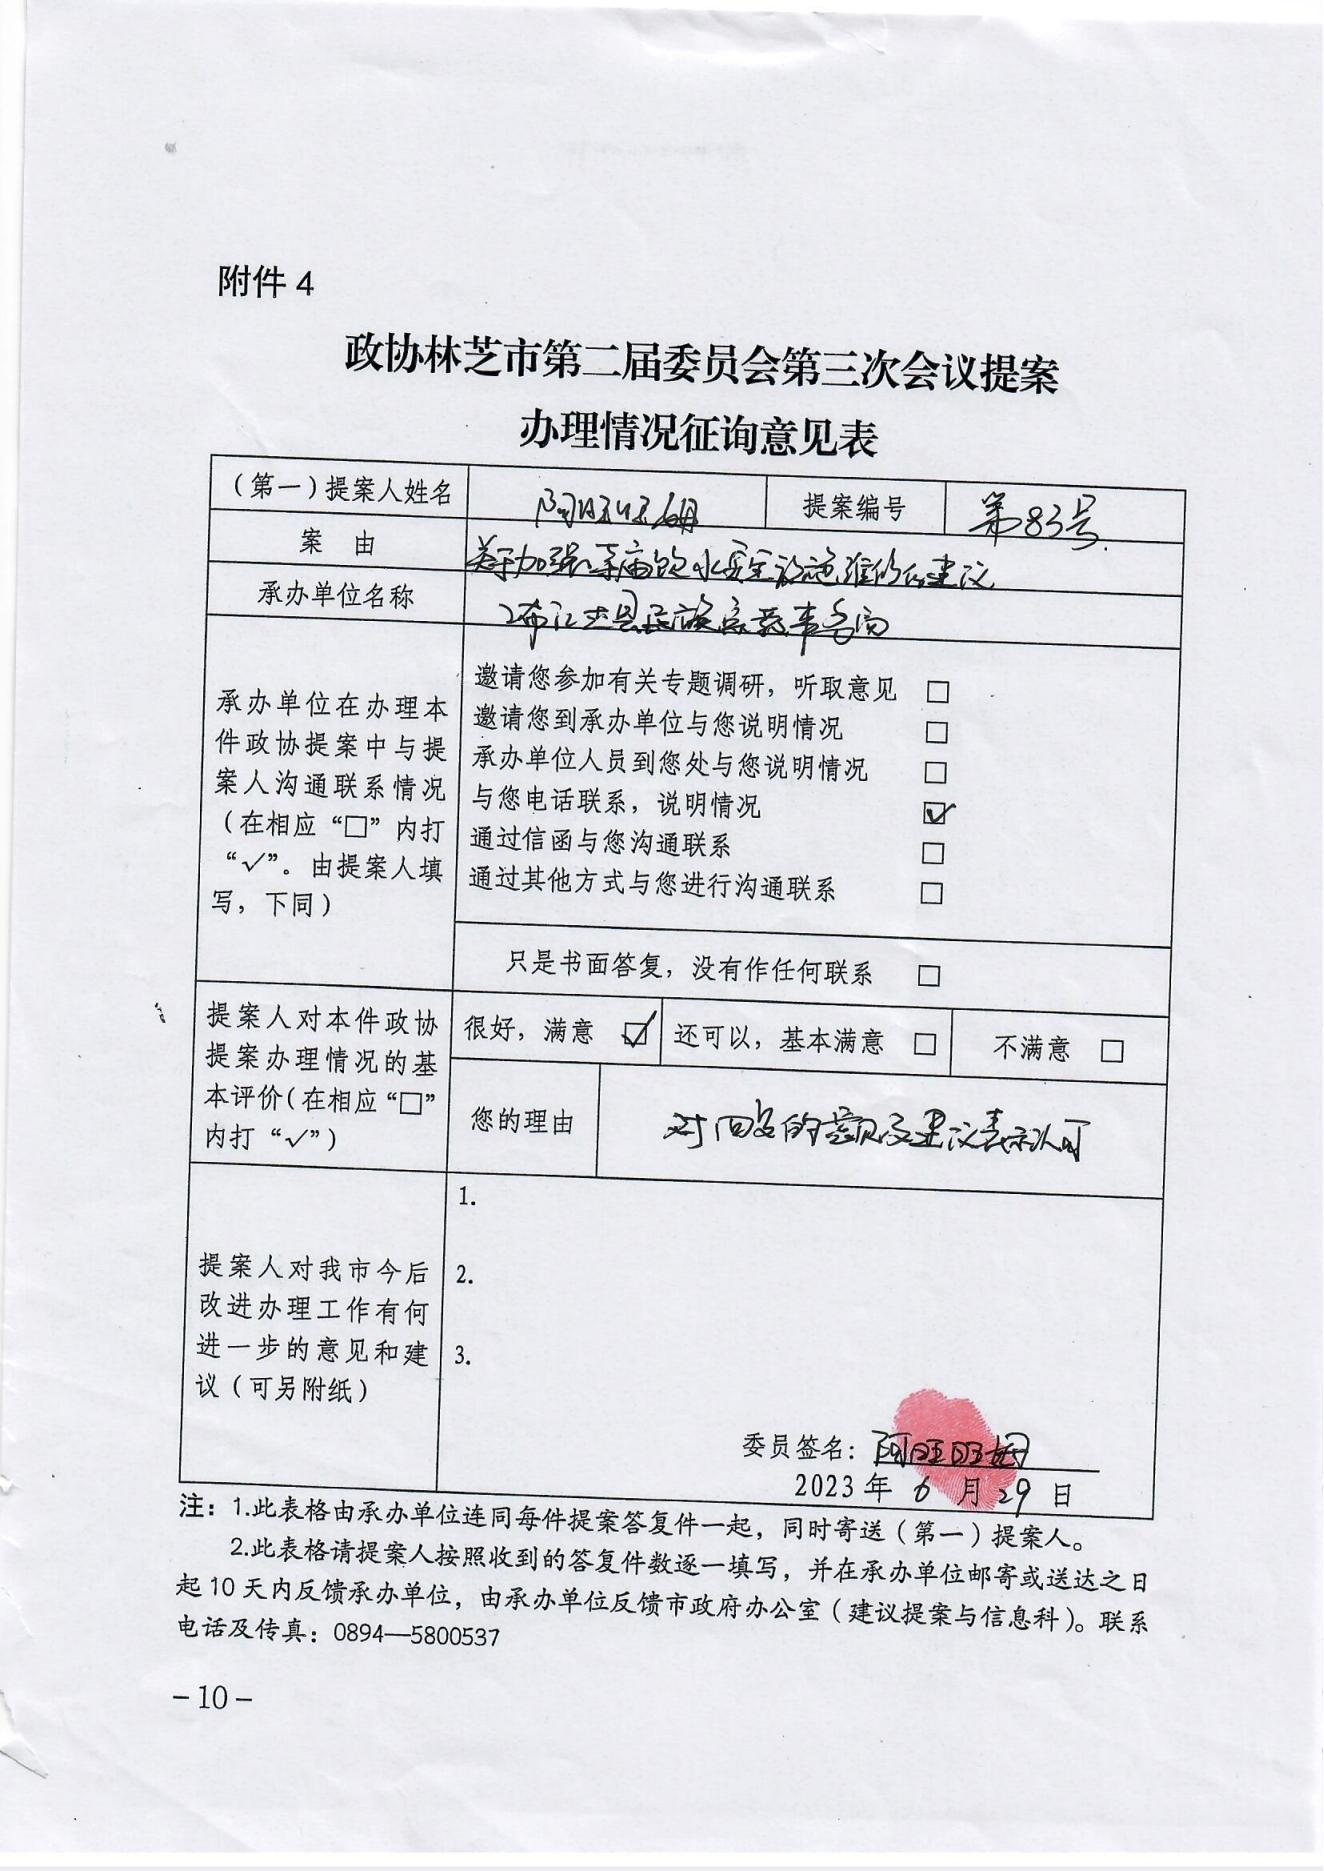 附件 4
政协林芝市第二届委员会第三次会议提案
办理情况征询意见表
（第一）提案人姓名 阿旺旺姆 提案编号 第83号
案 由 关于加强寺庙饮水安全设施维修的建议
承办单位名称 工布江达县民族宗教事务局
承办单位在办理本
件政协提案中与提
案人沟通联系情况
（在相应“□”内打
“√”。由提案人填
写，下同）
邀请您参加有关专题调研，听取意见 □
邀请您到承办单位与您说明情况 □
承办单位人员到您处与您说明情况 □
与您电话联系，说明情况 ☑
通过信函与您沟通联系 □
通过其他方式与您进行沟通联系 □
只是书面答复，没有作任何联系 □
提案人对本件政协
提案办理情况的基
本评价（在相应“□”
内打“√”）
很好，满意 ☑ 还可以，基本满意 □ 不满意 □
您的理由 对回复的意见及建议表示认可
提案人对我市今后
改进办理工作有何
进一步的意见和建
议（可另附纸）
1.
2.
3.
委员签名：阿旺旺姆
2023 年 6 月 29 日
注：1.此表格由承办单位连同每件提案答复件一起，同时寄送（第一）提案人。
2.此表格请提案人按照收到的答复件数逐一填写，并在承办单位邮寄或送达之日
起 10 天内反馈承办单位，由承办单位反馈市政府办公室（建议提案与信息科）。联系
电话及传真：0894—5800537
－10－